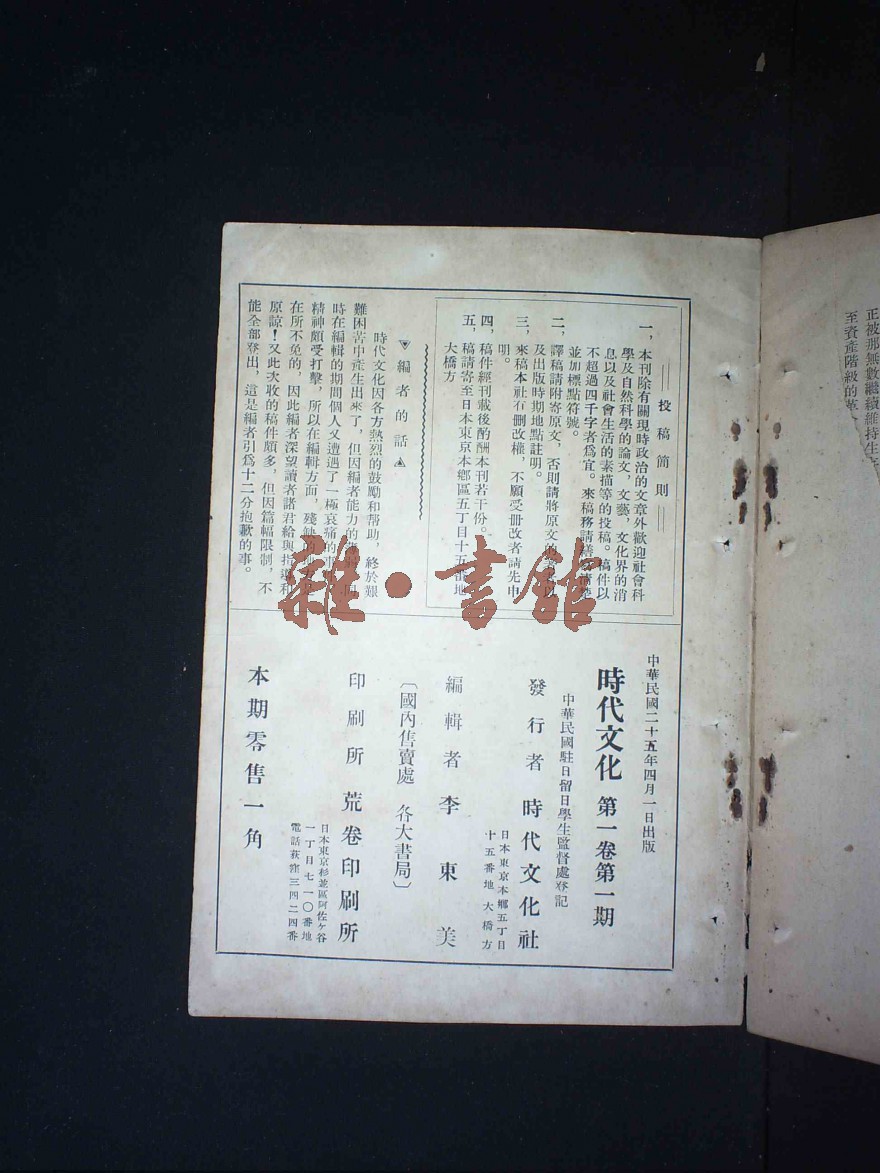 投稿簡則
一，本刊除有關現時政治的文章外歡迎社會科
學及自然科學的論文，文藝，文化界的消
息以及社會生活的素描等的投稿。稿件以
不超過四千字者爲宜。來稿務請繕寫清楚
並加標點符號。
二，譯稿請附寄原文，否則請將原文的著者以
及出版時期地點註明。
三，來稿本社有刪改權，不願受刪改者請先申
明。
四，稿件經刊載後酌酬本刊若干份。
五，稿請寄至日本東京本鄉區五丁目十五番地
大橋方
編者的話
時代文化因各方熱烈的鼓勵和帮助，終於艱
難困苦中產生出來了，但因編者能力的　　同
時在編輯的期間個人又遭遇了一極哀痛的事
精神頗受打擊，所以在編輯方面，殘缺的
在所不免的，因此編者深望讀者諸君給與指導和
原諒！又此次收的稿件頗多，但因篇幅限制，不
能全部登出，這是編者引爲十二分抱歉的事。
中華民國二十五年四月一日出版
時代文化 第一卷第一期
中華民國駐日留日學生監督處登記
發行者 時代文化社
日本東京本鄉五丁目
十五番地大橋方
編輯者 李東美
〔國內售賣處 各大書局〕
印刷所 荒卷印刷所
日本東京杉並區阿佐ケ谷
一丁目七一〇番地
電話荻窪三四二四番
本期零售一角
雜·書館
正被那無數繼續維持生
至資產階級的革